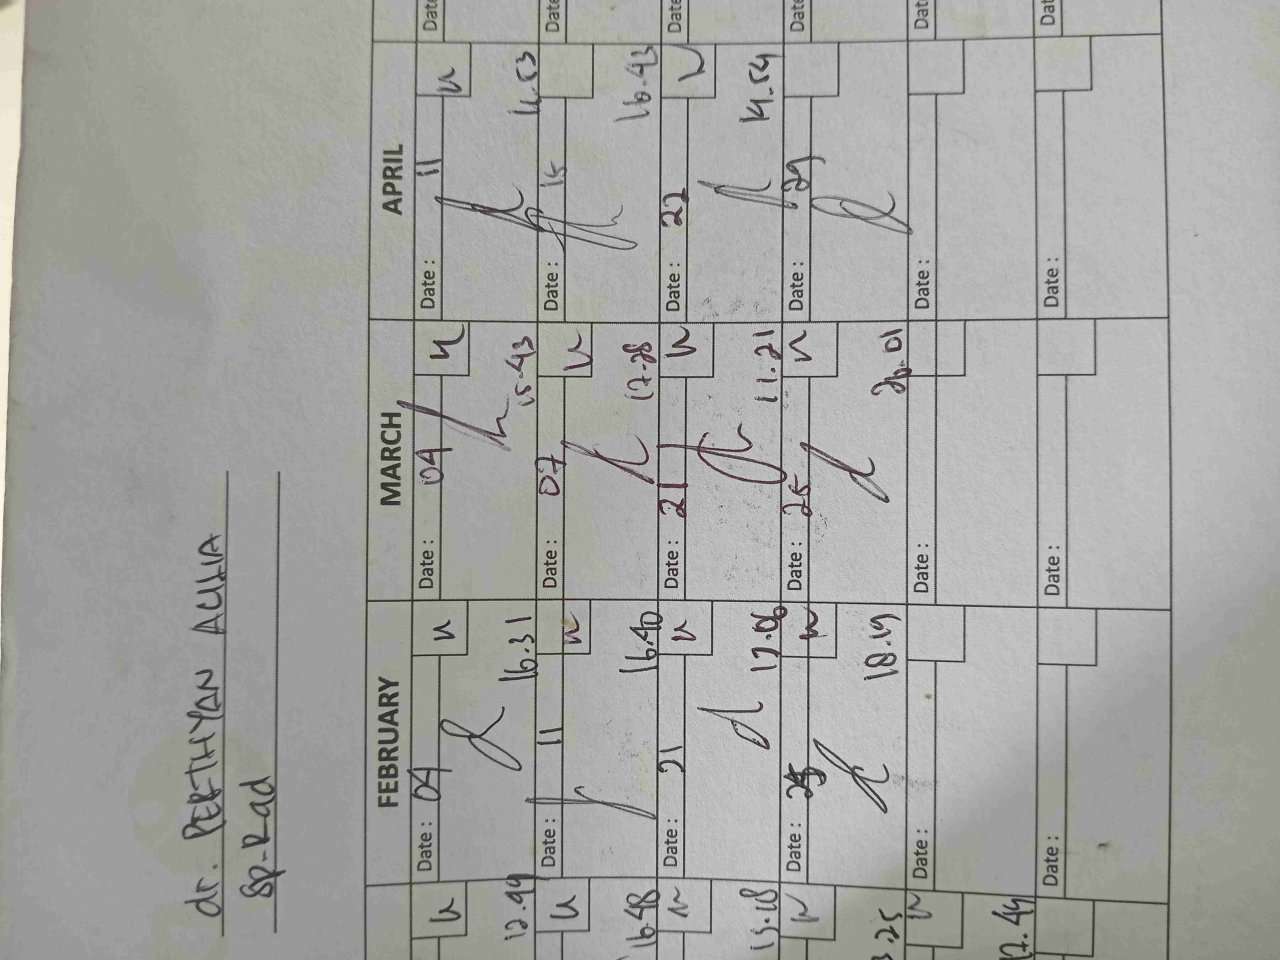 dr. PERTHYAN AULIA
Sp-Rad
FEBRUARY MARCH APRIL
Date : 04 Date : 04 Date : 11 Date
12.44 16.31 15.43
Date : 11 Date : 07 Date : 15 Date
16.48 16.40 17.28 16.43
Date : 21 Date : 21 Date : 22 Date
13.18 17.06 11.21 14.54
Date : 25 Date : 25 Date : 29 Date
3.25 18.19 20.01
Date : Date : Date : Date
17.44
Date : Date : Date : Dat